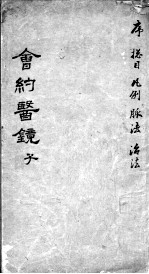 序 捴目 凡例 脉法 治法
會約醫鏡 子